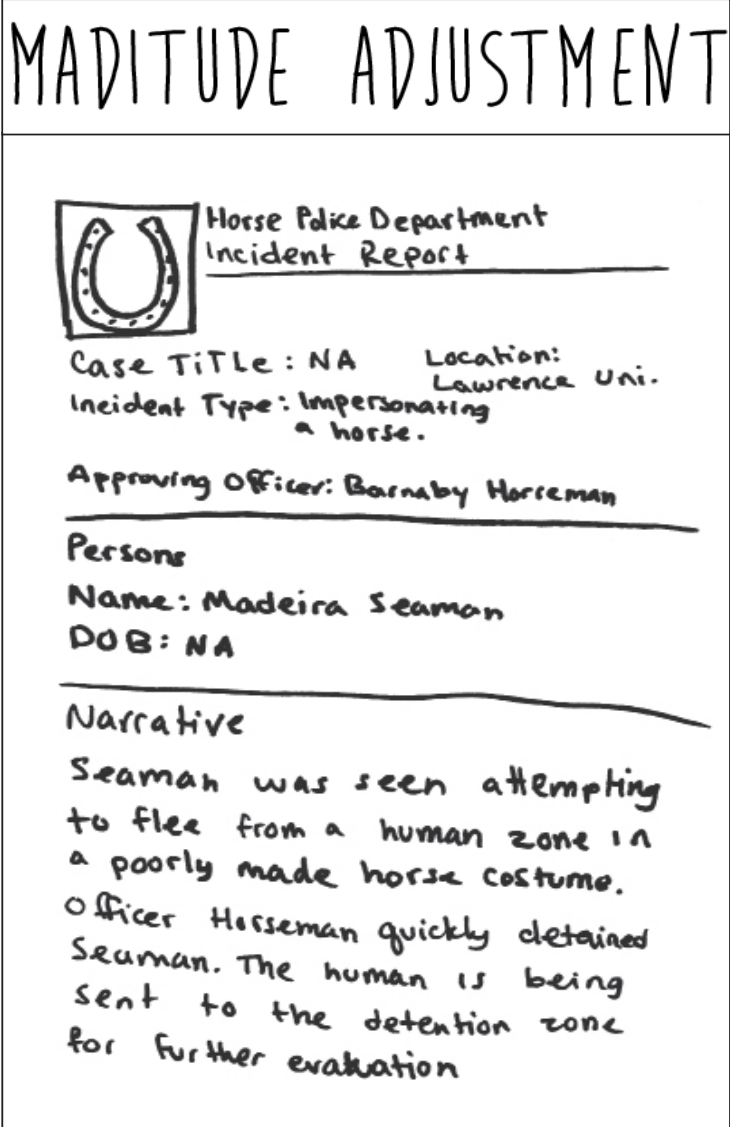 MADITUDE ADJUSTMENT
Horse Police Department
Incident Report
Case TiTLe : NA
Location:
Lawrence Uni.
Incident Type: Impersonating
a horse.
Approving Officer: Barnaby Horseman
Persons
Name: Madeira Seaman
DOB: NA
Narrative
Seaman was seen attempting
to flee from a human zone in
a poorly made horse costume.
Officer Horseman quickly detained
Seaman. The human is being
sent to the detention zone
for further evaluation